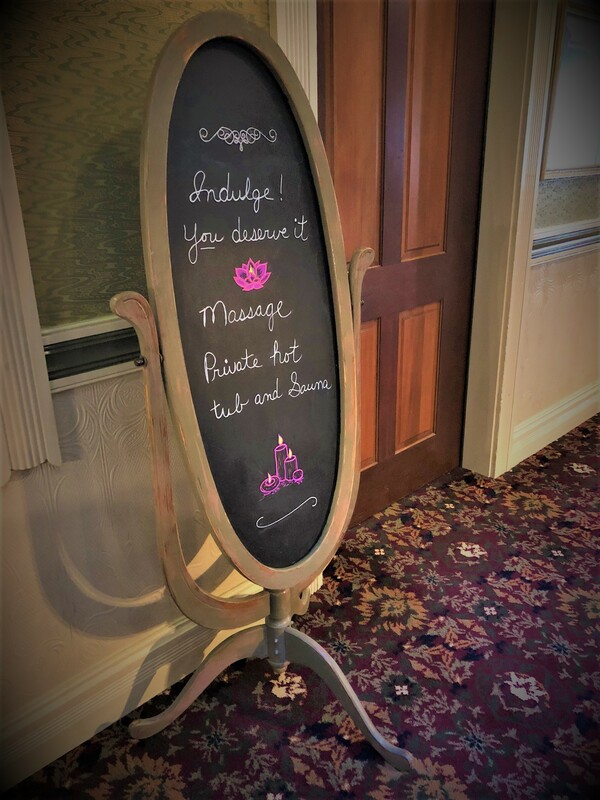 Indulge!
You deserve it
Massage
Private hot
tub and Sauna